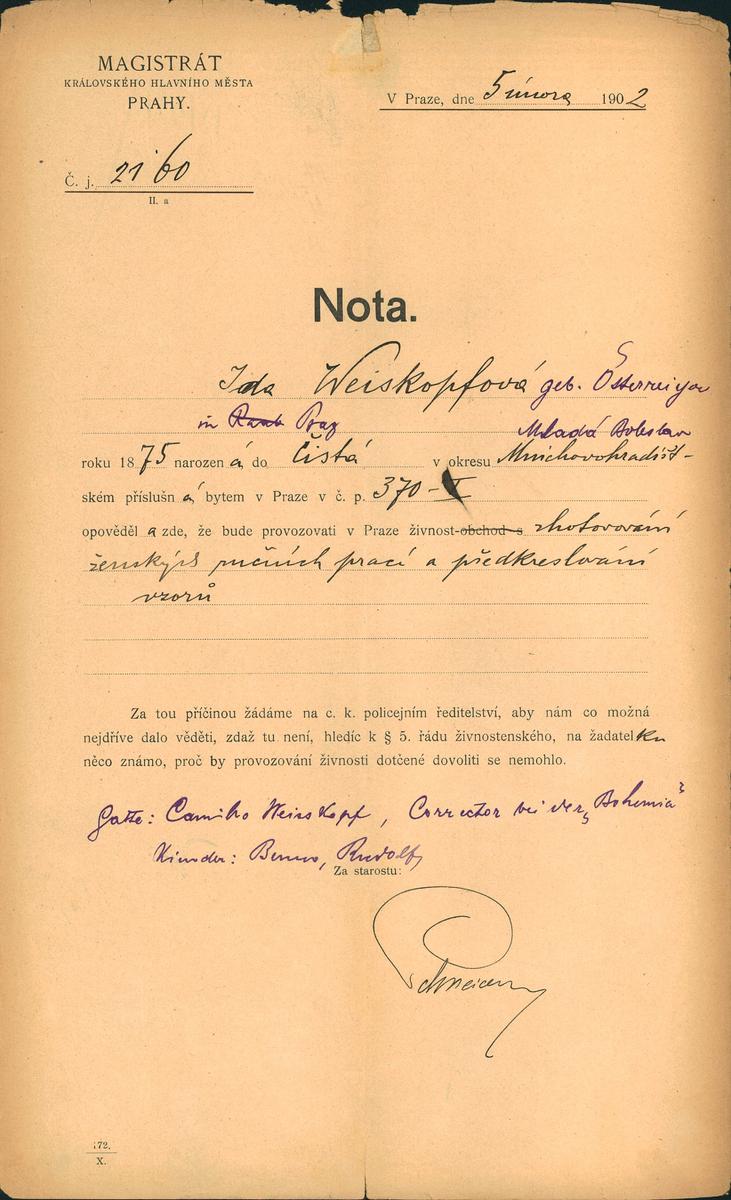 MAGISTRÁT
KRÁLOVSKÉHO HLAVNÍHO MĚSTA
PRAHY.
V Praze, dne 5 února 1902
Č. j. 21'60
II. a
Nota.
Ida Weiskopfová geb. Österreicher
in Raab Prag Mladá Boleslav
roku 1875 narozená, do Čistá v okresu Mnichovohradišt-
ském příslušná, bytem v Praze v č. p. 370-I
opověděla zde, že bude provozovati v Praze živnost-obchod s zhotovování
ženských ručních prací a předkreslování
vzorů
Za tou příčinou žádáme na c. k. policejním ředitelství, aby nám co možná
nejdříve dalo věděti, zdaž tu není, hledíc k § 5. řádu živnostenského, na žadatelku
něco známo, proč by provozování živnosti dotčené dovoliti se nemohlo.
Gatte: Camillo Weisskopf, Corrector bei der „Bohemia"
Kinder: Benno, Rudolf,
Za starostu:
172.
X.